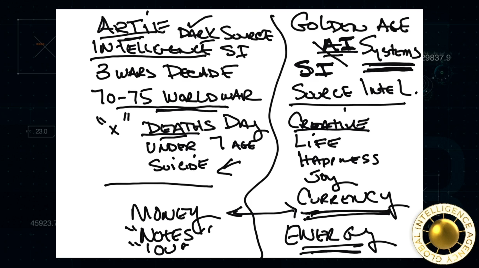 ARTIE DARK SOURCE
INTELLIGENCE SI
3 WARS DECADE
70-75 WORLD WAR
"X" DEATHS DAY
UNDER 7 AGE
SUICIDE
MONEY
"NOTES"
"IOU"
GOLDEN AGE
AI SYSTEMS
SI
SOURCE INTEL.
CREATIVE
LIFE
HAPPINESS
JOY
CURRENCY
ENERGY
29837.9
20.0
45923.7
GLOBAL INTELLIGENCE AGENCY